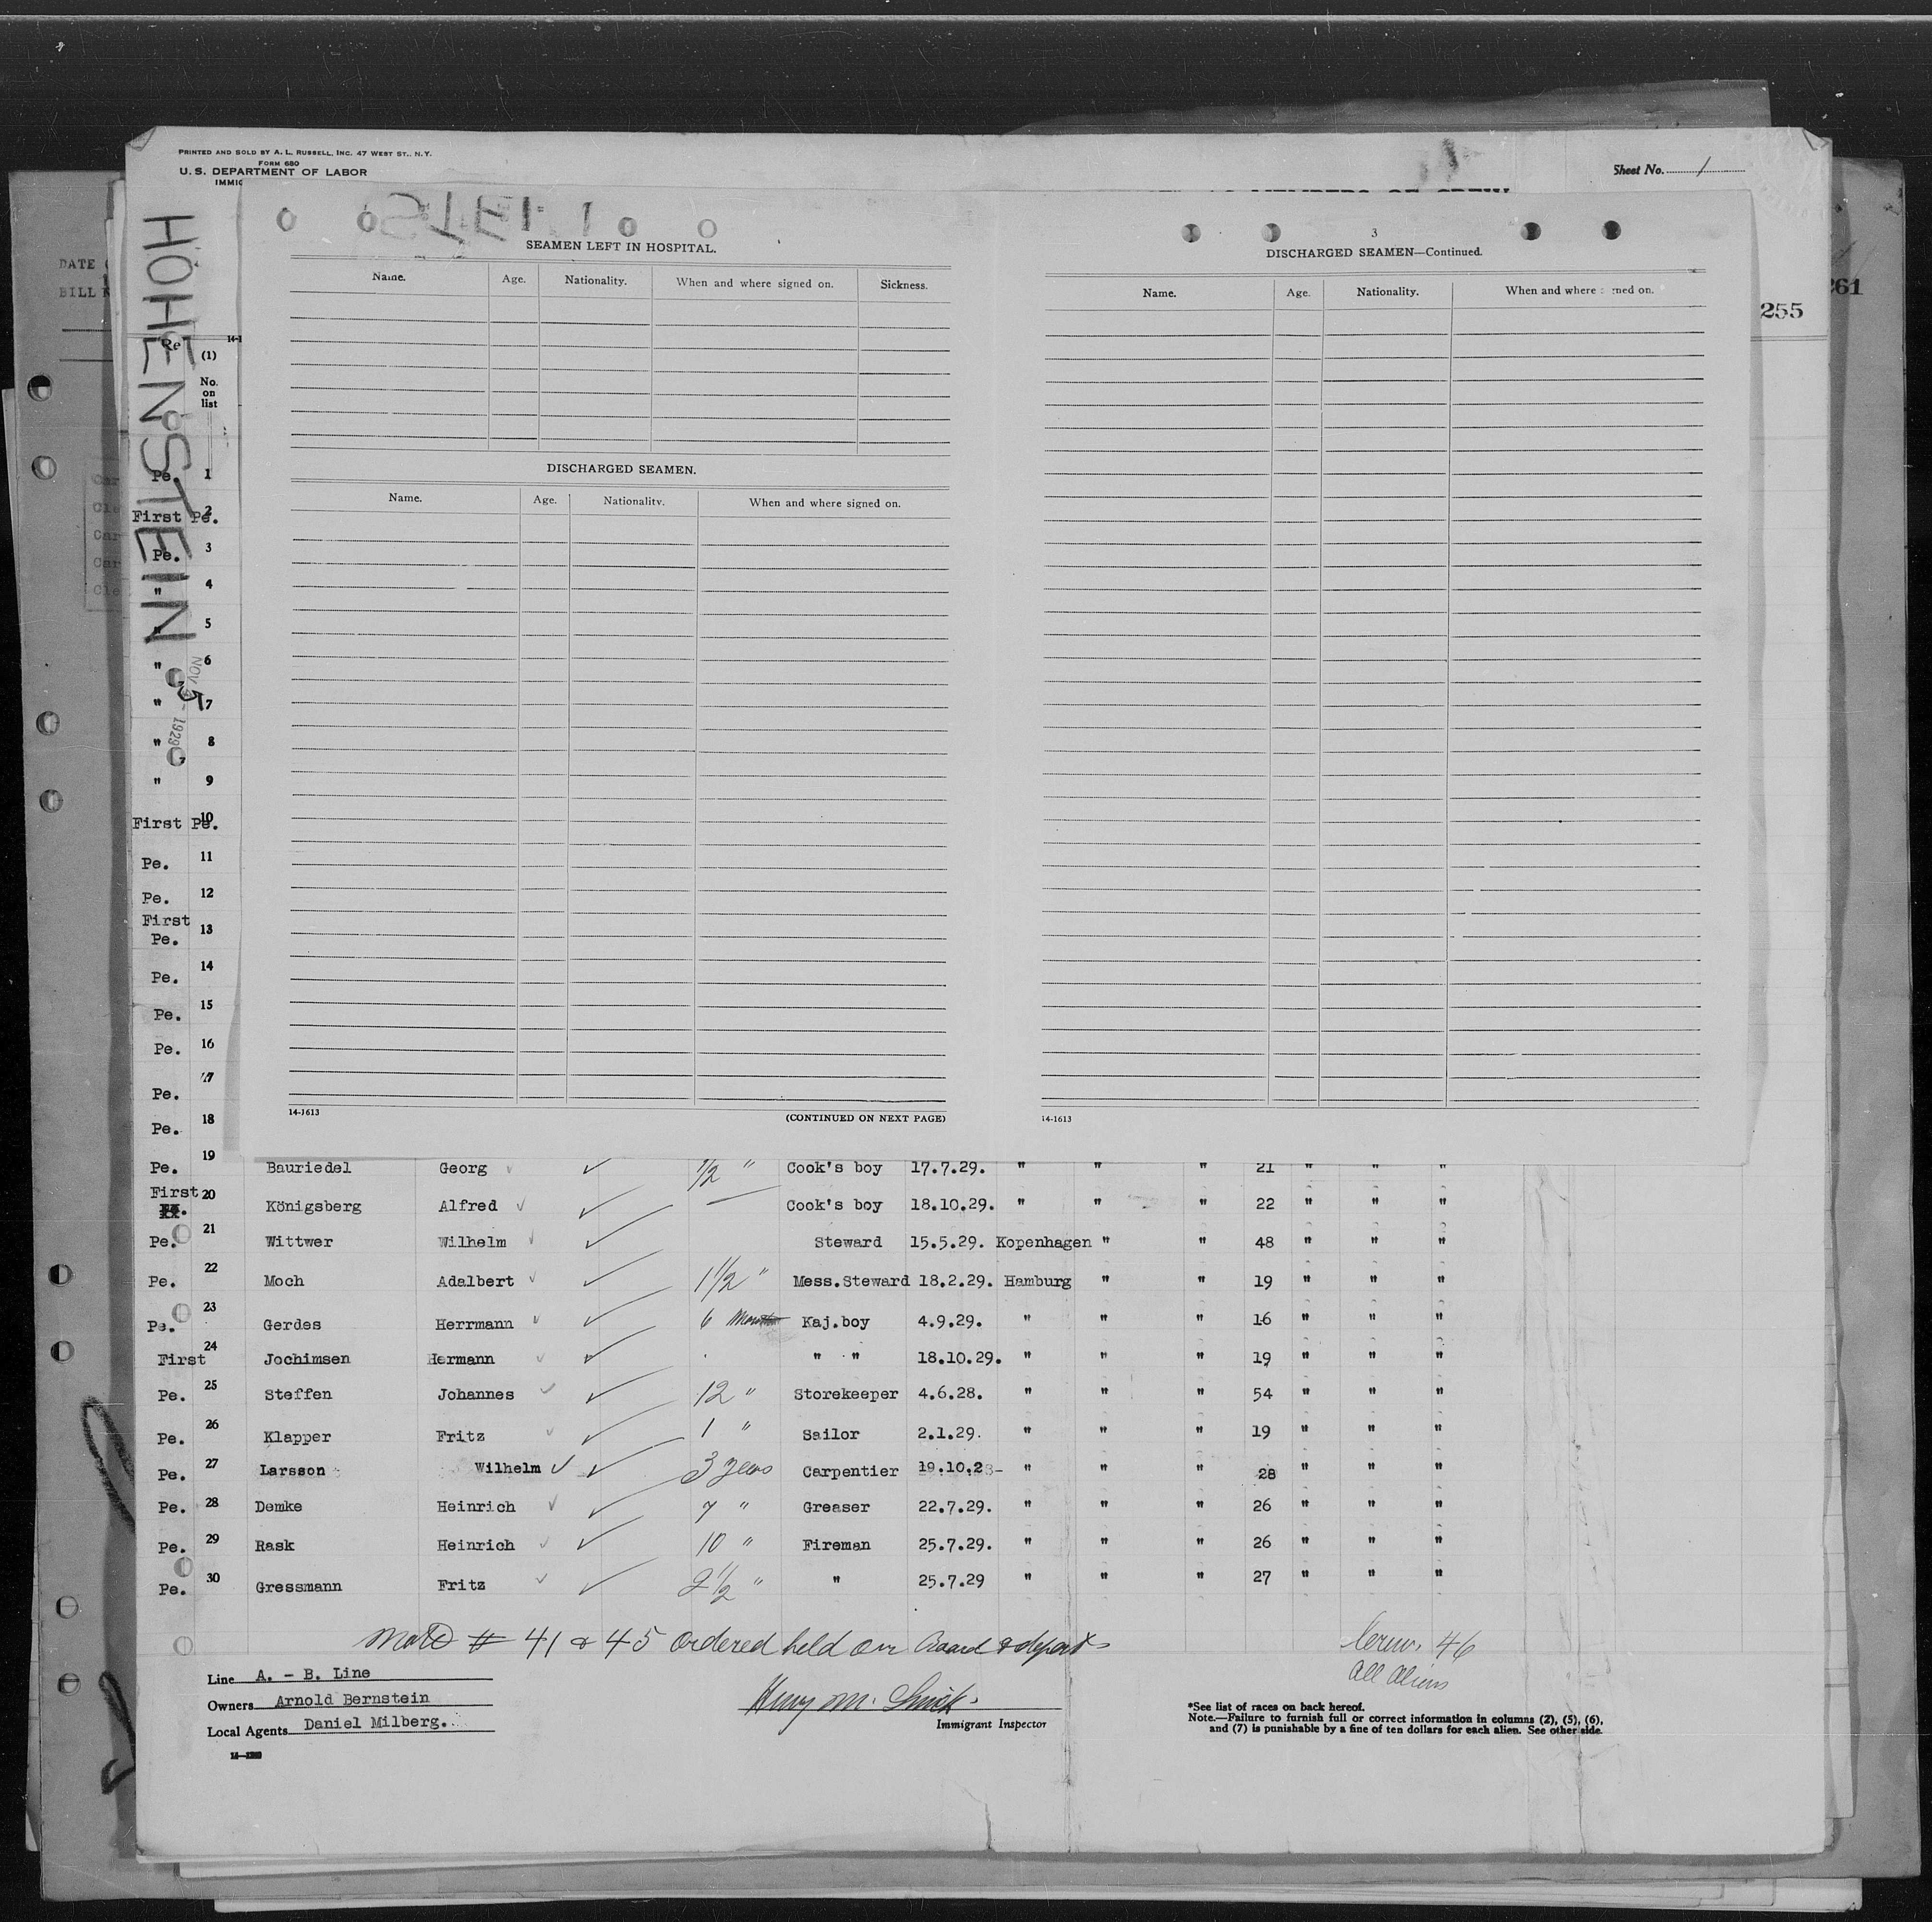 PRINTED AND SOLD BY A. L. RUSSELL, INC. 47 WEST ST., N.Y.
FORM 680
U. S. DEPARTMENT OF LABOR
Sheet No. 1
HOHENSTEIN
NOV 5 - 1929
DATE
BILL
261
255
(1)
No. on list
SEAMEN LEFT IN HOSPITAL.
Name. Age. Nationality. When and where signed on. Sickness.
DISCHARGED SEAMEN.
Name. Age. Nationality. When and where signed on.
14-1613 (CONTINUED ON NEXT PAGE)
3
DISCHARGED SEAMEN—Continued.
Name. Age. Nationality. When and where signed on.
14-1613
Pe. 1
First Pe. 2
Pe. 3
" 4
" 5
" 6
" 7
" 8
" 9
First Pe. 10
Pe. 11
Pe. 12
First Pe. 13
Pe. 14
Pe. 15
Pe. 16
Pe. 17
Pe. 18
Pe. 19 Bauriedel Georg 1/2 " Cook's boy 17.7.29. " " " 21 " " "
First 20 Königsberg Alfred — Cook's boy 18.10.29. " " " 22 " " "
Pe. 21 Wittwer Wilhelm Steward 15.5.29. Kopenhagen " " 48 " " "
Pe. 22 Moch Adalbert 1 1/2 " Mess.Steward 18.2.29. Hamburg " " 19 " " "
Pe. 23 Gerdes Herrmann 6 Months Kaj.boy 4.9.29. " " " 16 " " "
First 24 Jochimsen Hermann " " 18.10.29. " " " 19 " " "
Pe. 25 Steffen Johannes 12 " Storekeeper 4.6.28. " " " 54 " " "
Pe. 26 Klapper Fritz 1 " Sailor 2.1.29. " " " 19 " " "
Pe. 27 Larsson Wilhelm 3 years Carpentier 19.10.28- " " " 28 " " "
Pe. 28 Demke Heinrich 7 " Greaser 22.7.29. " " " 26 " " "
Pe. 29 Rask Heinrich 10 " Fireman 25.7.29. " " " 26 " " "
Pe. 30 Gressmann Fritz 2 1/2 " " 25.7.29 " " " 27 " " "
Note # 41 & 45 ordered held on board & deport
Crew. 46
All Aliens
Line A. - B. Line
Owners Arnold Bernstein
Local Agents Daniel Milberg.
Henry M.
Immigrant Inspector
*See list of races on back hereof.
Note.—Failure to furnish full or correct information in columns (2), (5), (6),
and (7) is punishable by a fine of ten dollars for each alien. See other side.